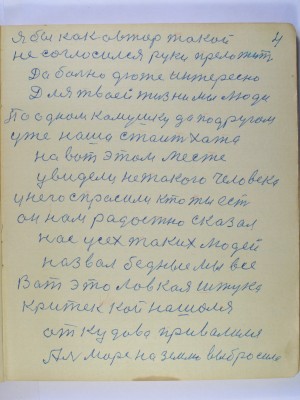 4
Я бы как автор такой
не согласился руки преложит
Да болно дюже интересно
Для твоей жизни мы люди
По одном камушку да по другом
уже наша стаит хата
на вот этом месте
увидели не такого человека
у него спросили кто ты ест
он нам радостно сказал
нас усех таких людей
назвал бедные мы все
Ват это ловкая штука
Критек кой нашоля
откудова привалиля
Аля море на землю выбросило